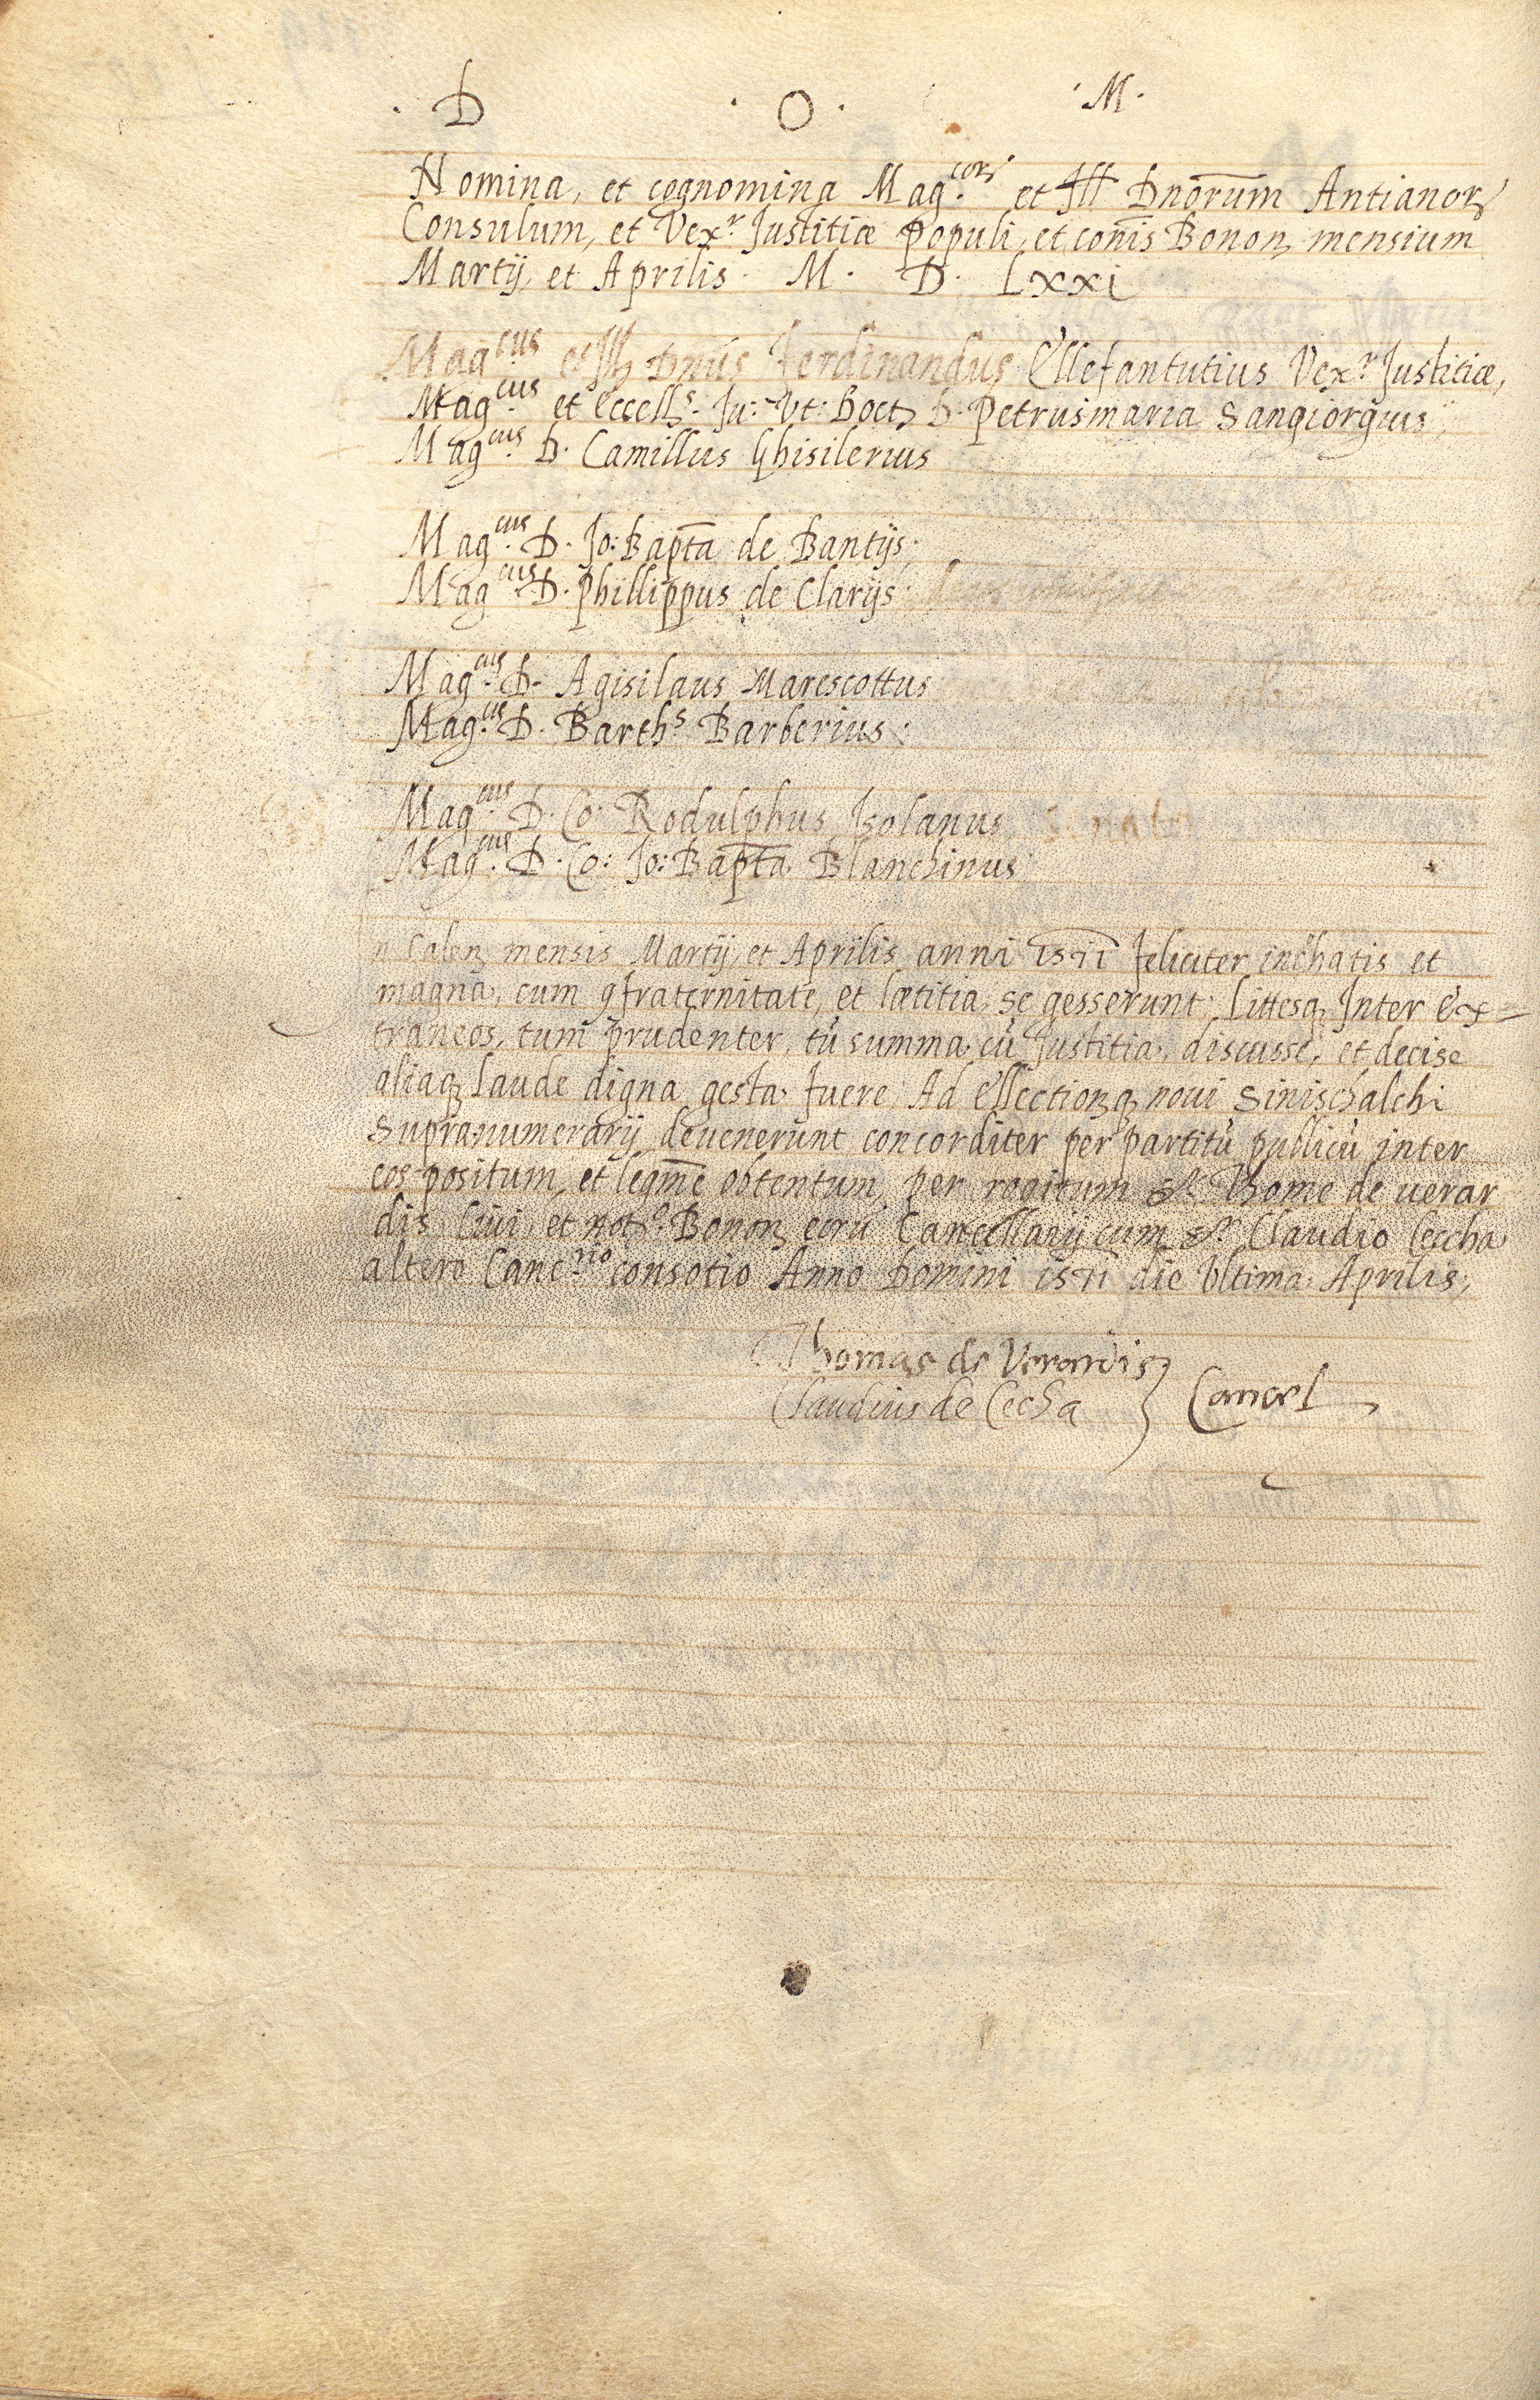 . D . O . M .
Nomina, et cognomina Mag.corꝝ et Ill Dnōrum Antianorꝝ
Consulum, et Vex.r Justitiæ Populi, et com̄is Bonon mensium
Martij, et Aprilis . M . D . Lxxi
Mag.cus et Ill Dnūs Ferdinandus Ellefantutius Vex.r Justitiæ,
Mag.cus et eccells. Ju: Vt: Doct D. Petrusmaria Sangiorgius,
Mag.cus D. Camillus Ghisilerius
Mag.cus D. Jo: Bapt̄a de Bantijs,
Mag.cus D. Phillippus de Clarijs
Mag.cus D. Agisilaus Marescottus
Mag.cus D. Barth.s Barberius.
Mag.cus D. Co: Rodulphus Isolanus
Mag.cus D. Co: Jo: Bapt̄a Blanchinus
n Calen mensis Martij, et Aprilis, anni 1571 feliciter inchatis et
magna, cum ꝯfraternitate, et lætitia, se gesserunt, littesqꝫ Inter Ex=
traneos, tum prudenter, tū summa cū Justitia, discusse, et decise
aliaqꝫ laude digna gesta fuere, Ad Ellectionꝫ qꝫ noui Sinischalchi
Supranumerarij deuenerunt concorditer per partitū publicū inter
eos positum, et legm̄e obtentum, per rogitum Sr. Thome de uerar
dis, Ciui, et not.o Bonon, eorū Cancellarij cum Sr. Claudio Ceccha
altero Canc.rio consotio Anno Domini 1571 die Vltima Aprilis,
Thomas de Verardis
Claudius de Cecha } Cancel